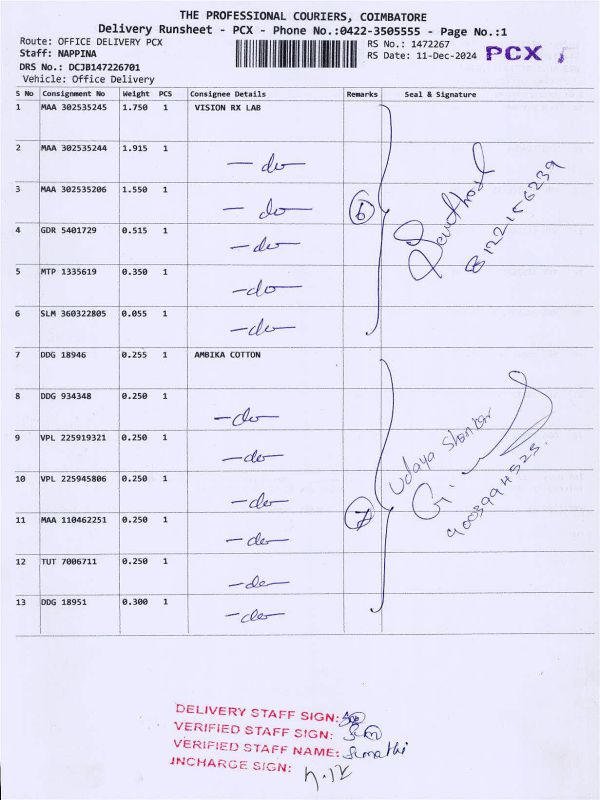 THE PROFESSIONAL COURIERS, COIMBATORE
Delivery Runsheet - PCX - Phone No.:0422-3505555 - Page No.:1
Route: OFFICE DELIVERY PCX
Staff: NAPPINA
DRS No.: DCJB147226701
Vehicle: Office Delivery
RS No.: 1472267
RS Date: 11-Dec-2024
PCX
S No Consignment No Weight PCS Consignee Details Remarks Seal & Signature
1 MAA 302535245 1.750 1 VISION RX LAB
2 MAA 302535244 1.915 1 -do-
3 MAA 302535206 1.550 1 -do-
4 GDR 5401729 0.515 1 -do-
5 MTP 1335619 0.350 1 -do-
6 SLM 360322805 0.055 1 -do-
6
8122156239
7 DDG 18946 0.255 1 AMBIKA COTTON
8 DDG 934348 0.250 1 -do-
9 VPL 225919321 0.250 1 -do-
10 VPL 225945806 0.250 1 -do-
11 MAA 110462251 0.250 1 -do-
12 TUT 7006711 0.250 1 -do-
13 DDG 18951 0.300 1 -do-
7
Udaya Shankar
DELIVERY STAFF SIGN:
VERIFIED STAFF SIGN:
VERIFIED STAFF NAME: Sumathi
INCHARGE SIGN: